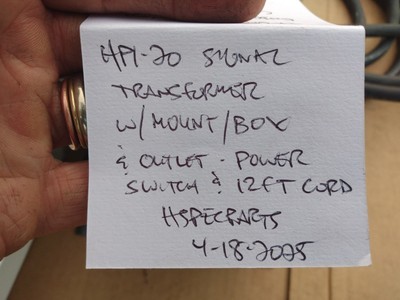 HPI-20 SIGNAL
TRANSFORMER
W/MOUNT/BOX
& OUTLET - POWER
SWITCH & 12FT CORD
HSPECPARTS
4-18-2025